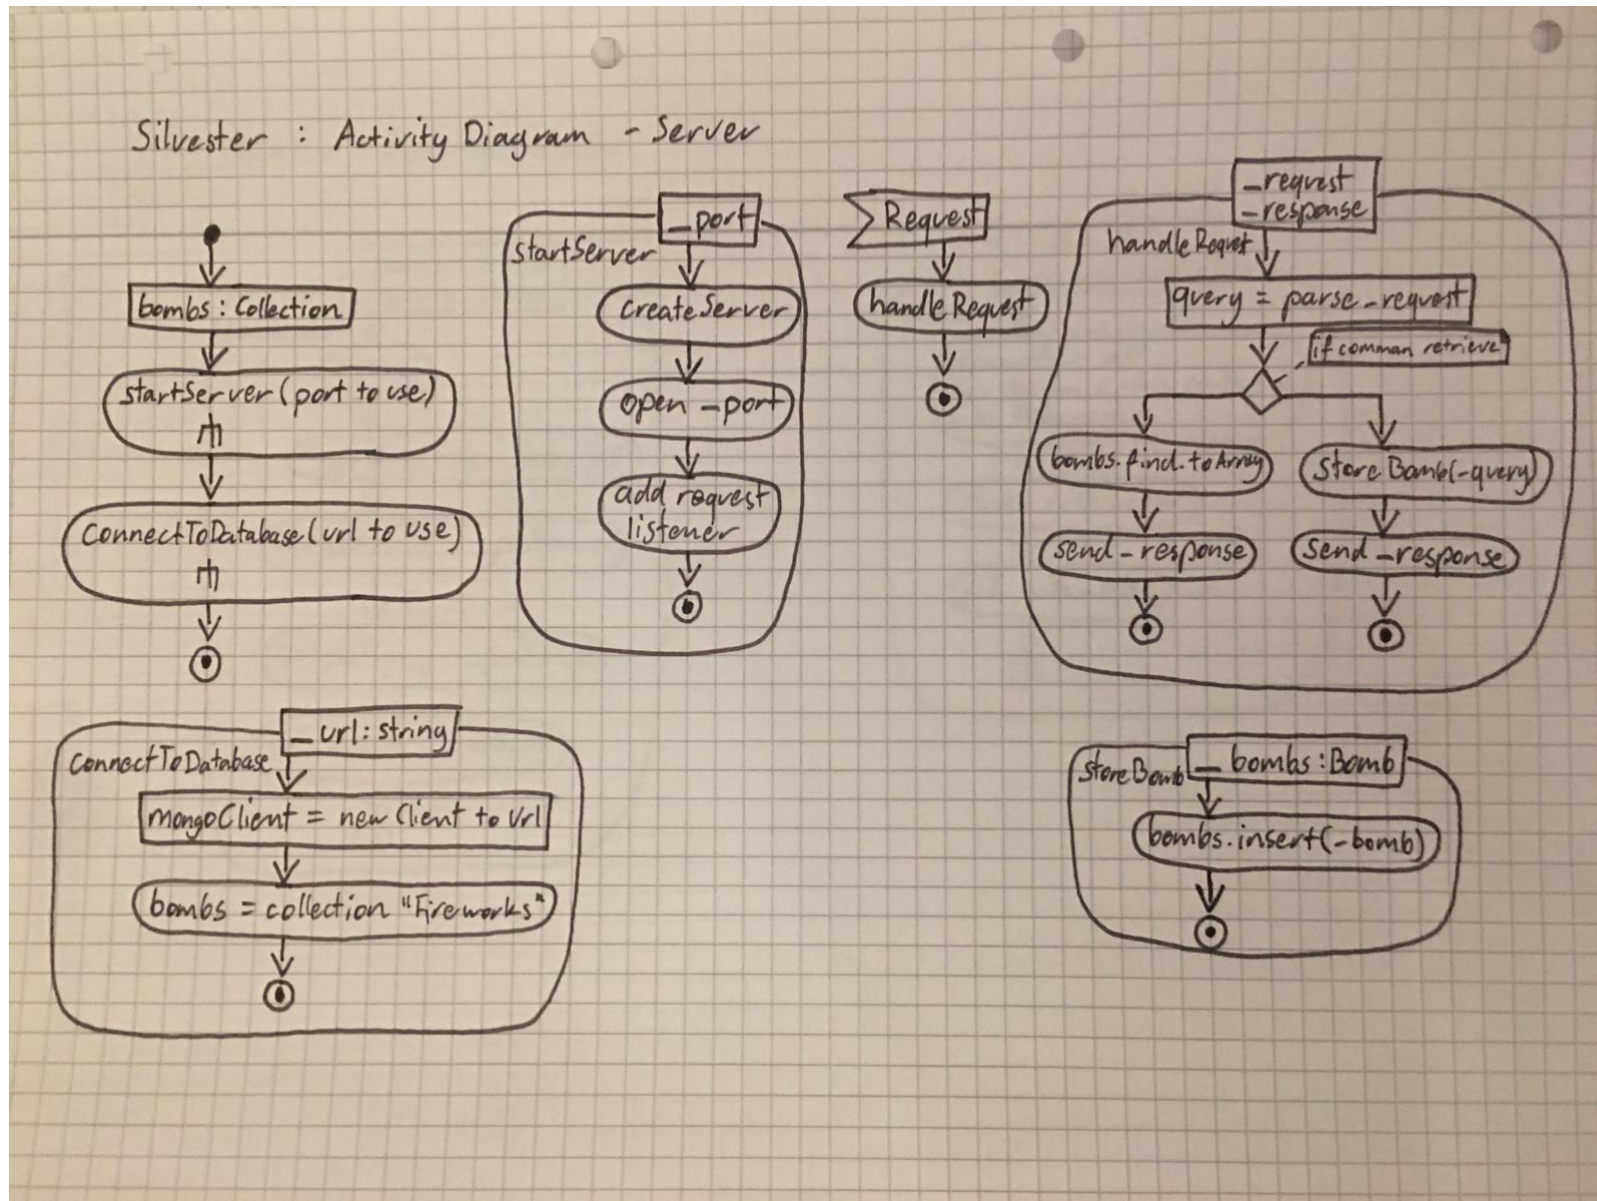 Silvester : Activity Diagram - Server
bombs : Collection
startServer (port to use)
connectToDatabase (url to use)
_port
startServer
createServer
open _port
add request
listener
Request
handleRequest
_request
_response
handleRequet
query = parse _request
if comman retrieve
bombs.find.toArray
send _response
storeBomb(_query)
send _response
_url : string
connectToDatabase
mongoClient = new Client to Url
bombs = collection "Fireworks"
_bombs : Bomb
storeBomb
bombs.insert(_bomb)